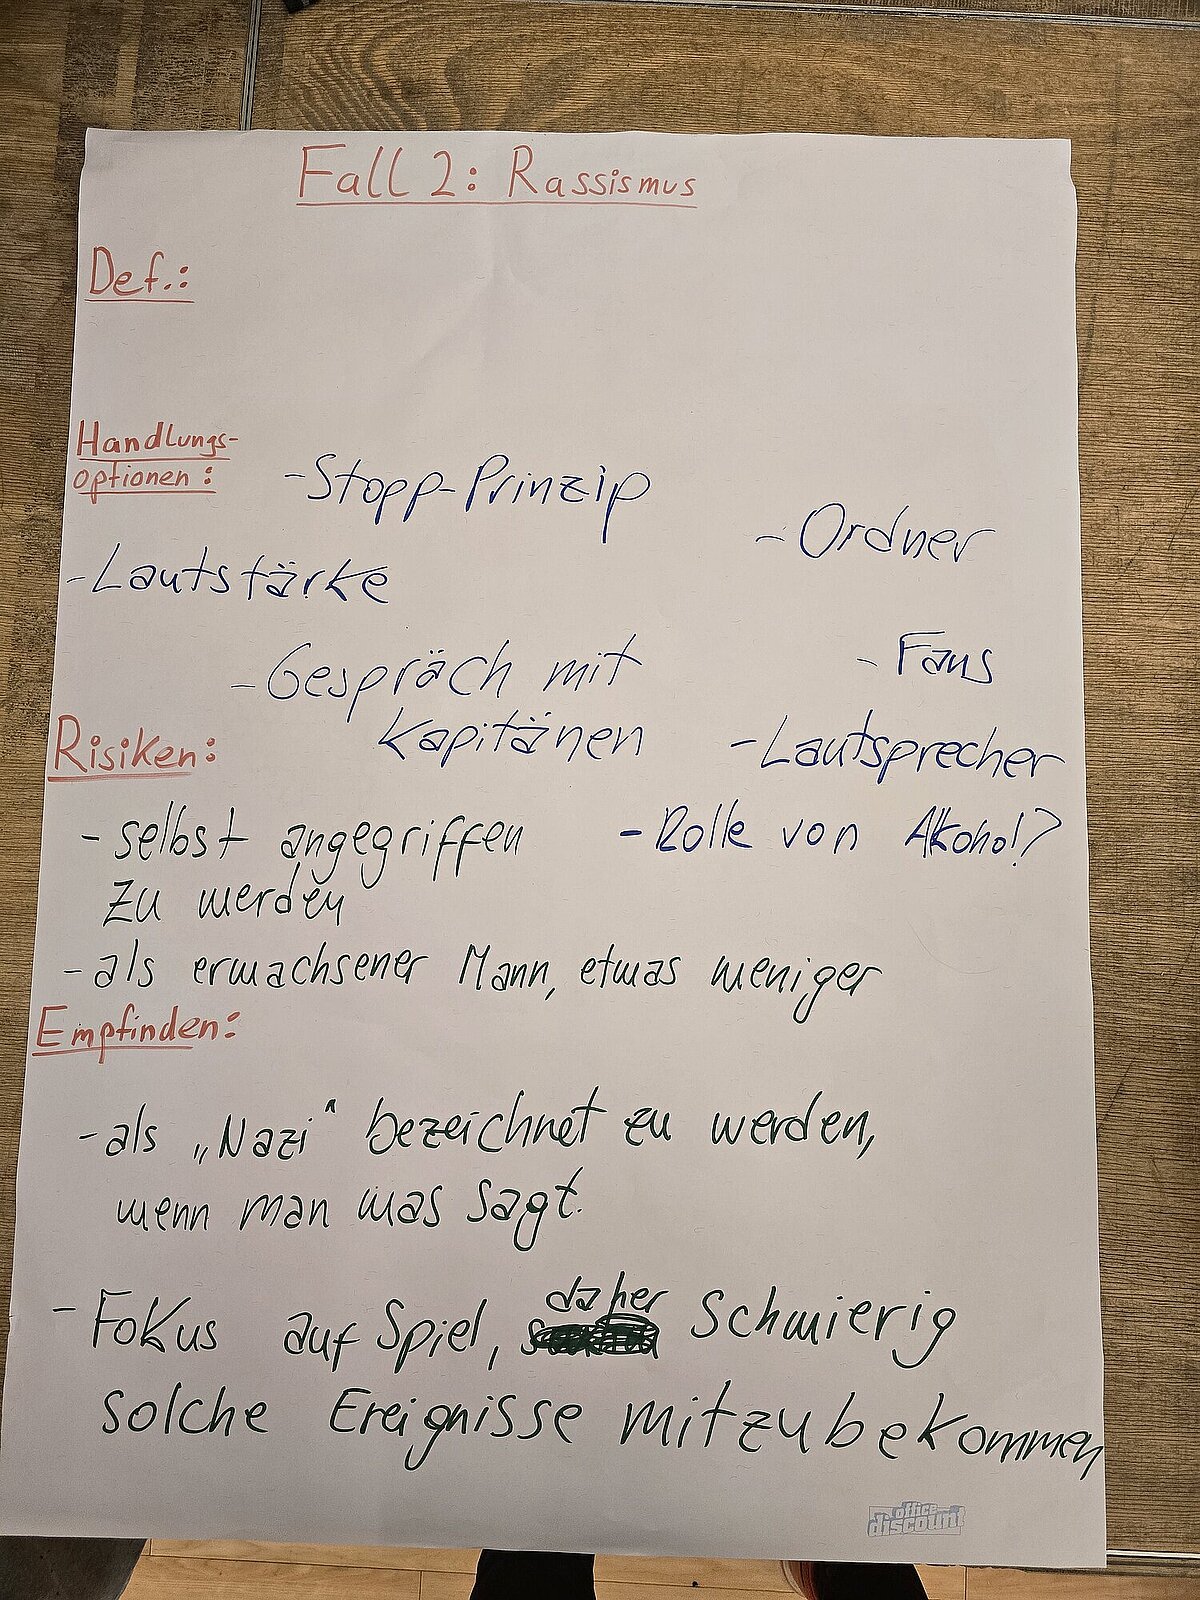 Fall 2: Rassismus
Def.:
Handlungs-
optionen:
- Stopp-Prinzip
- Ordner
- Lautstärke
- Fans
- Gespräch mit
Kapitänen
- Lautsprecher
Risiken:
- Rolle von Alkohol?
- selbst angegriffen
zu werden
- als erwachsener Mann, etwas weniger
Empfinden:
- als „Nazi“ bezeichnet zu werden,
wenn man was sagt.
- Fokus auf Spiel, daher Schwierig
solche Ereignisse mitzubekommen
office
discount